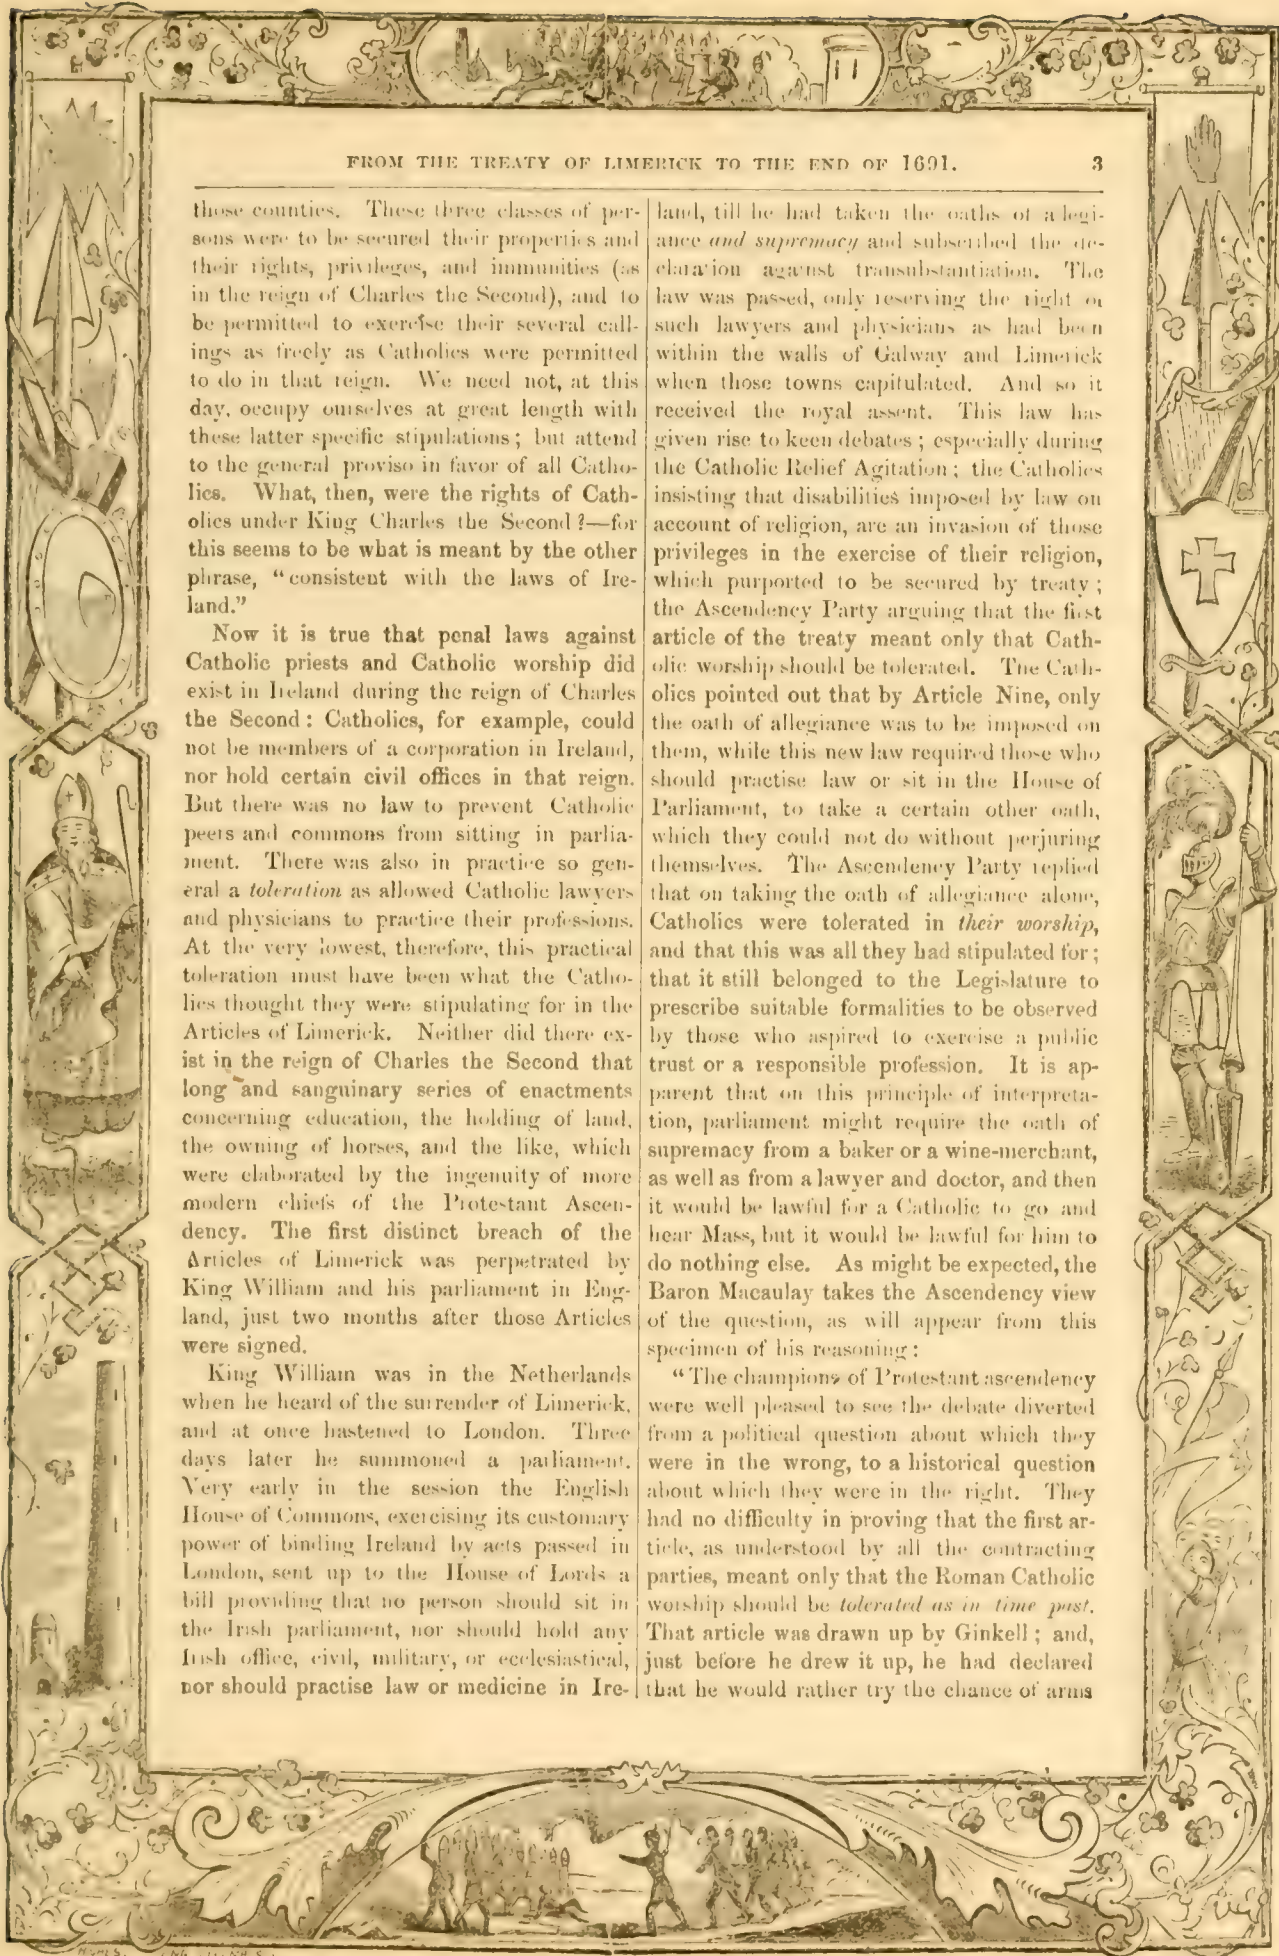 FROM THE TREATY OF LIMERICK TO THE END OF 1691. 3
those counties. These three classes of per-
sons were to be secured their properties and
their rights, privileges, and immunities (as
in the reign of Charles the Second), and to
be permitted to exercise their several call-
ings as freely as Catholics were permitted
to do in that reign. We need not, at this
day, occupy ourselves at great length with
these latter specific stipulations; but attend
to the general proviso in favor of all Catho-
lics. What, then, were the rights of Cath-
olics under King Charles the Second?—for
this seems to be what is meant by the other
phrase, "consistent with the laws of Ire-
land."
Now it is true that penal laws against
Catholic priests and Catholic worship did
exist in Ireland during the reign of Charles
the Second: Catholics, for example, could
not be members of a corporation in Ireland,
nor hold certain civil offices in that reign.
But there was no law to prevent Catholic
peers and commons from sitting in parlia-
ment. There was also in practice so gen-
eral a toleration as allowed Catholic lawyers
and physicians to practice their professions.
At the very lowest, therefore, this practical
toleration must have been what the Catho-
lics thought they were stipulating for in the
Articles of Limerick. Neither did there ex-
ist in the reign of Charles the Second that
long and sanguinary series of enactments
concerning education, the holding of land,
the owning of horses, and the like, which
were elaborated by the ingenuity of more
modern chiefs of the Protestant Ascen-
dency. The first distinct breach of the
Articles of Limerick was perpetrated by
King William and his parliament in Eng-
land, just two months after those Articles
were signed.
King William was in the Netherlands
when he heard of the surrender of Limerick,
and at once hastened to London. Three
days later he summoned a parliament.
Very early in the session the English
House of Commons, exercising its customary
power of binding Ireland by acts passed in
London, sent up to the House of Lords a
bill providing that no person should sit in
the Irish parliament, nor should hold any
Irish office, civil, military, or ecclesiastical,
nor should practise law or medicine in Ire-
land, till he had taken the oaths of allegi-
ance and supremacy and subscribed the de-
claration against transubstantiation. The
law was passed, only reserving the right of
such lawyers and physicians as had been
within the walls of Galway and Limerick
when those towns capitulated. And so it
received the royal assent. This law has
given rise to keen debates; especially during
the Catholic Relief Agitation; the Catholics
insisting that disabilities imposed by law on
account of religion, are an invasion of those
privileges in the exercise of their religion,
which purported to be secured by treaty;
the Ascendency Party arguing that the first
article of the treaty meant only that Cath-
olic worship should be tolerated. The Cath-
olics pointed out that by Article Nine, only
the oath of allegiance was to be imposed on
them, while this new law required those who
should practise law or sit in the House of
Parliament, to take a certain other oath,
which they could not do without perjuring
themselves. The Ascendency Party replied
that on taking the oath of allegiance alone,
Catholics were tolerated in their worship,
and that this was all they had stipulated for;
that it still belonged to the Legislature to
prescribe suitable formalities to be observed
by those who aspired to exercise a public
trust or a responsible profession. It is ap-
parent that on this principle of interpreta-
tion, parliament might require the oath of
supremacy from a baker or a wine-merchant,
as well as from a lawyer and doctor, and then
it would be lawful for a Catholic to go and
hear Mass, but it would be lawful for him to
do nothing else. As might be expected, the
Baron Macaulay takes the Ascendency view
of the question, as will appear from this
specimen of his reasoning:
"The champions of Protestant ascendency
were well pleased to see the debate diverted
from a political question about which they
were in the wrong, to a historical question
about which they were in the right. They
had no difficulty in proving that the first ar-
ticle, as understood by all the contracting
parties, meant only that the Roman Catholic
worship should be tolerated as in time past.
That article was drawn up by Ginkell; and,
just before he drew it up, he had declared
that he would rather try the chance of arms